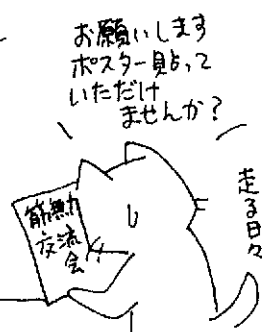 お願いします
ポスター貼って
いただけ
ませんか?
走る日々
交流
会